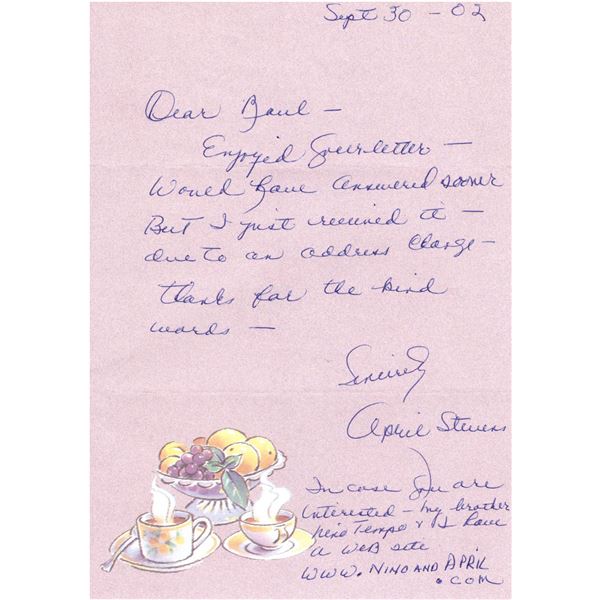 Sept 30 - 02
Dear Paul -
Enjoyed your letter -
Would have answered sooner
But I just received it -
due to an address change -
thanks for the kind
words -
Sincerely
April Stevens
In case you are
interested - my brother
Nino Tempo & I have
a web site
www.NINOANDAPRIL
.COM